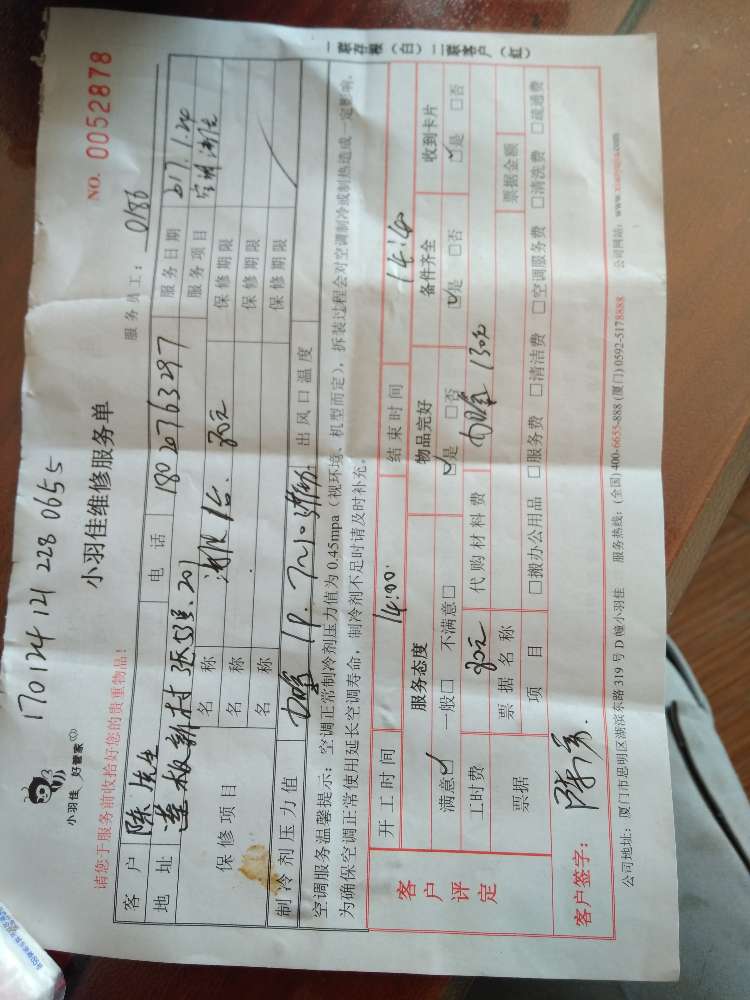 170124121 228 0655
NO. 0052878
小羽佳 好管家
小羽佳维修服务单
请您于服务前收拾好您的贵重物品!
服务员工: 0186
客户 陈先生 电话 18020763297 服务日期 2017.1.24
地址 莲板新村 201 服务项目 空调
保修项目 名称 80元 保修期限
名称 保修期限
名称 保修期限
制冷剂压力值 出风口温度
空调服务温馨提示: 空调正常制冷剂压力值为 0.45mpa(视环境、机型而定), 拆装过程会对空调制冷或制热造成一定影响,
为确保空调正常使用延长空调寿命, 制冷剂不足时请及时补充。
客户评定
开工时间 14:00 结束时间 14:40
服务态度 物品完好 备件齐全 收到卡片
满意☑ 一般□ 不满意□ ☑是 □否 ☑是 □否 ☑是 □否
工时费 80元 代购材料费 130元
票据 票据名称 票据金额
项目 □搬办公用品 □服务费 □清洁费 □空调服务费 □清洗费 □疏通费
客户签字: 陈
公司地址: 厦门市思明区湖滨东路 319 号 D 幢小羽佳 服务热线: (全国) 400-6655-888 (厦门) 0592-5178888 公司网站: www.xiaoyujia.com
一联存根(白) 二联客户(红)